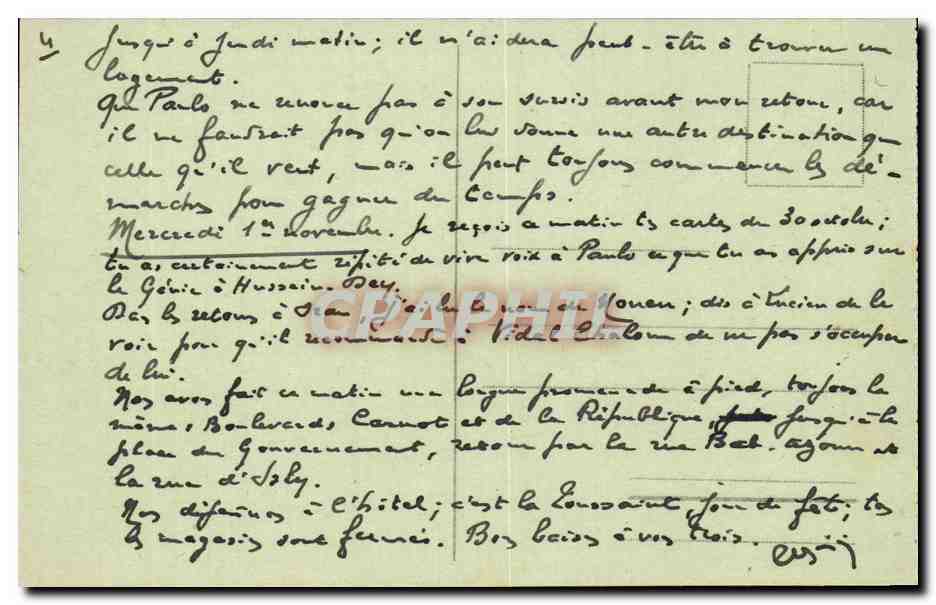 4 Jusqu'à Jeudi matin; il m'aidera peut-être à trouver un
logement.
Que Paulo ne renonce pas à son sursis avant mon retour, car
il ne faudrait pas qu'on lui donne une autre destination que
celle qu'il veut, mais il peut toujours commencer les dé-
marches pour gagner du temps.
Mercredi 1er novembre. Je reçois ce matin tes cartes du 30 octobre;
tu as certainement répété de vive voix à Paulo ce que tu as appris sur
le Génie à Hussein-Dey.
Dans les retours à Oran, j'ai lu le nom de; dis à Lucien de le
voir pour qu'il recommande à Vidal de ne pas s'occuper
de lui.
Nous avons fait ce matin une longue promenade à pied, toujours les
mêmes Boulevards Carnot et de la République, jusqu'à la
place du Gouvernement, retour par la rue Bab-Azoun et
la rue d'Isly.
Nous déjeûnons à l'hôtel; c'est la Toussaint, jour de fête; tous
les magasins sont fermés. Bons baisers à vos trois.
CPAPHIL